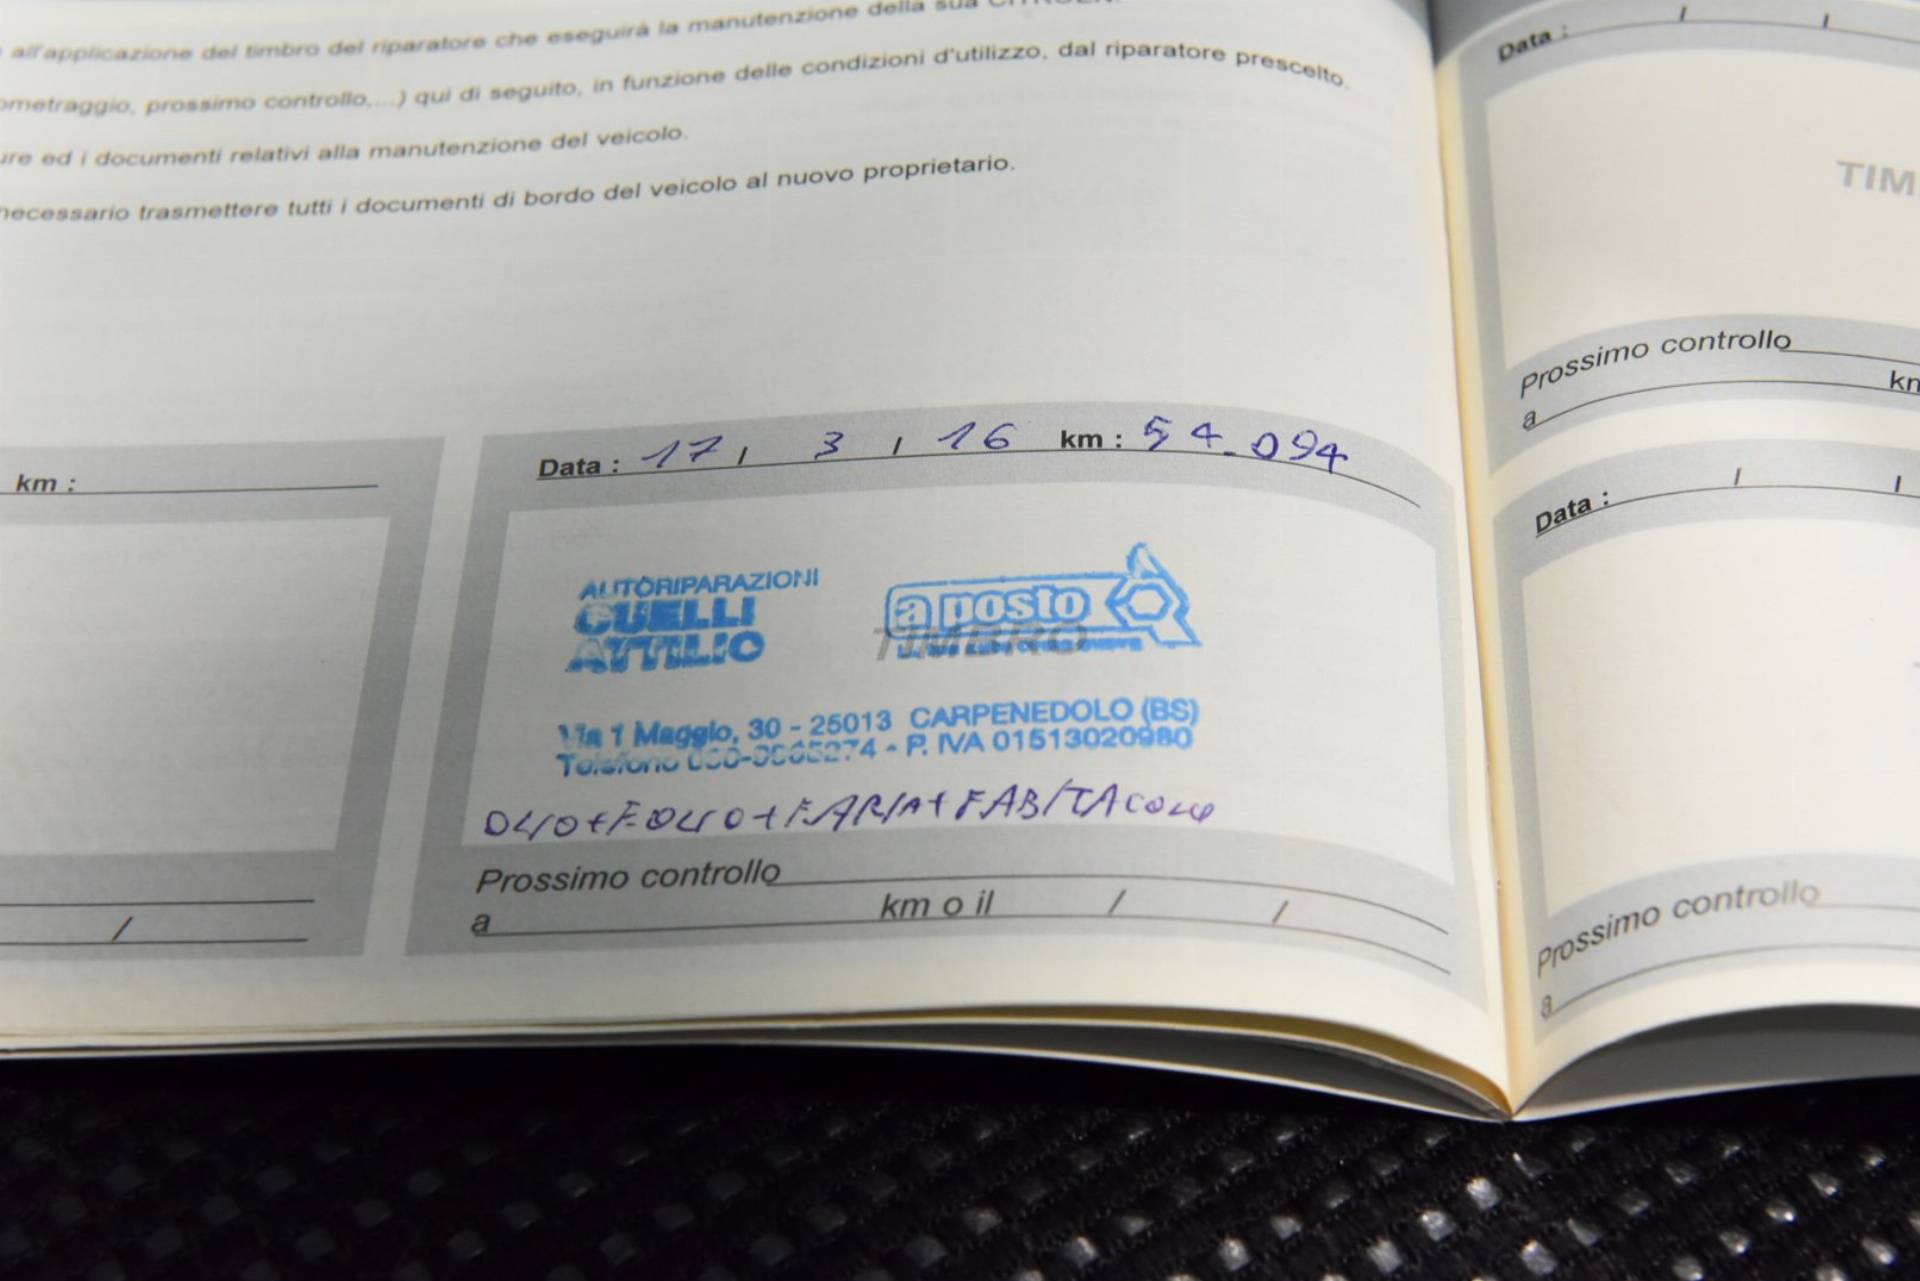 all'applicazione del timbro del riparatore che eseguirà la manutenzione della sua CITROËN.
ometraggio, prossimo controllo,...) qui di seguito, in funzione delle condizioni d'utilizzo, dal riparatore prescelto.
ure ed i documenti relativi alla manutenzione del veicolo.
necessario trasmettere tutti i documenti di bordo del veicolo al nuovo proprietario.
km :
/
Data : 17 / 3 / 16 km : 54.094
AUTORIPARAZIONI
CUELLI
ATTILIO
a posto
TIMBRO
Via 1 Maggio, 30 - 25013 CARPENEDOLO (BS)
Telefono - P. IVA 01513020980
OLIO+F.OLIO+F.ARIA+FABITACOLO
Prossimo controllo
a km o il / /
Data : / /
TIM
Prossimo controllo
a km
Data : / /
Prossimo controllo
a